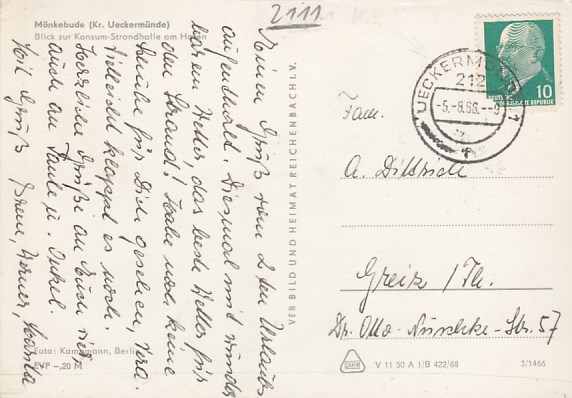 Mönkebude (Kr. Ueckermünde)
Blick zur Konsum-Strandhalle am Hafen
2111
Einen Gruß vom 2 ten Urlaubs
aufenthalt. Diesmal mit wunder
barem Wetter, das beste Wetter für
den Strand! Habe noch keine
Schuhe für Dich gesehen, Vera.
Vielleicht klappt es noch.
Herzliche Grüße an Euch vier,
auch an Tante u. Onkel.
Mit Gruß Irene, Werner,
Foto: Kampmann, Berlin
EVP -,20 M
VEB BILD UND HEIMAT REICHENBACH I. V.
UECKERMÜNDE 1
212
-5.-8.68.--9
10
DEUTSCHE DEMOKRATISCHE REPUBLIK
Fam.
A. Dittrich
Greiz /Th.
Dr. Otto-Nuschke-Str. 57
V 11 50 A 1/B 422/68
3/1466